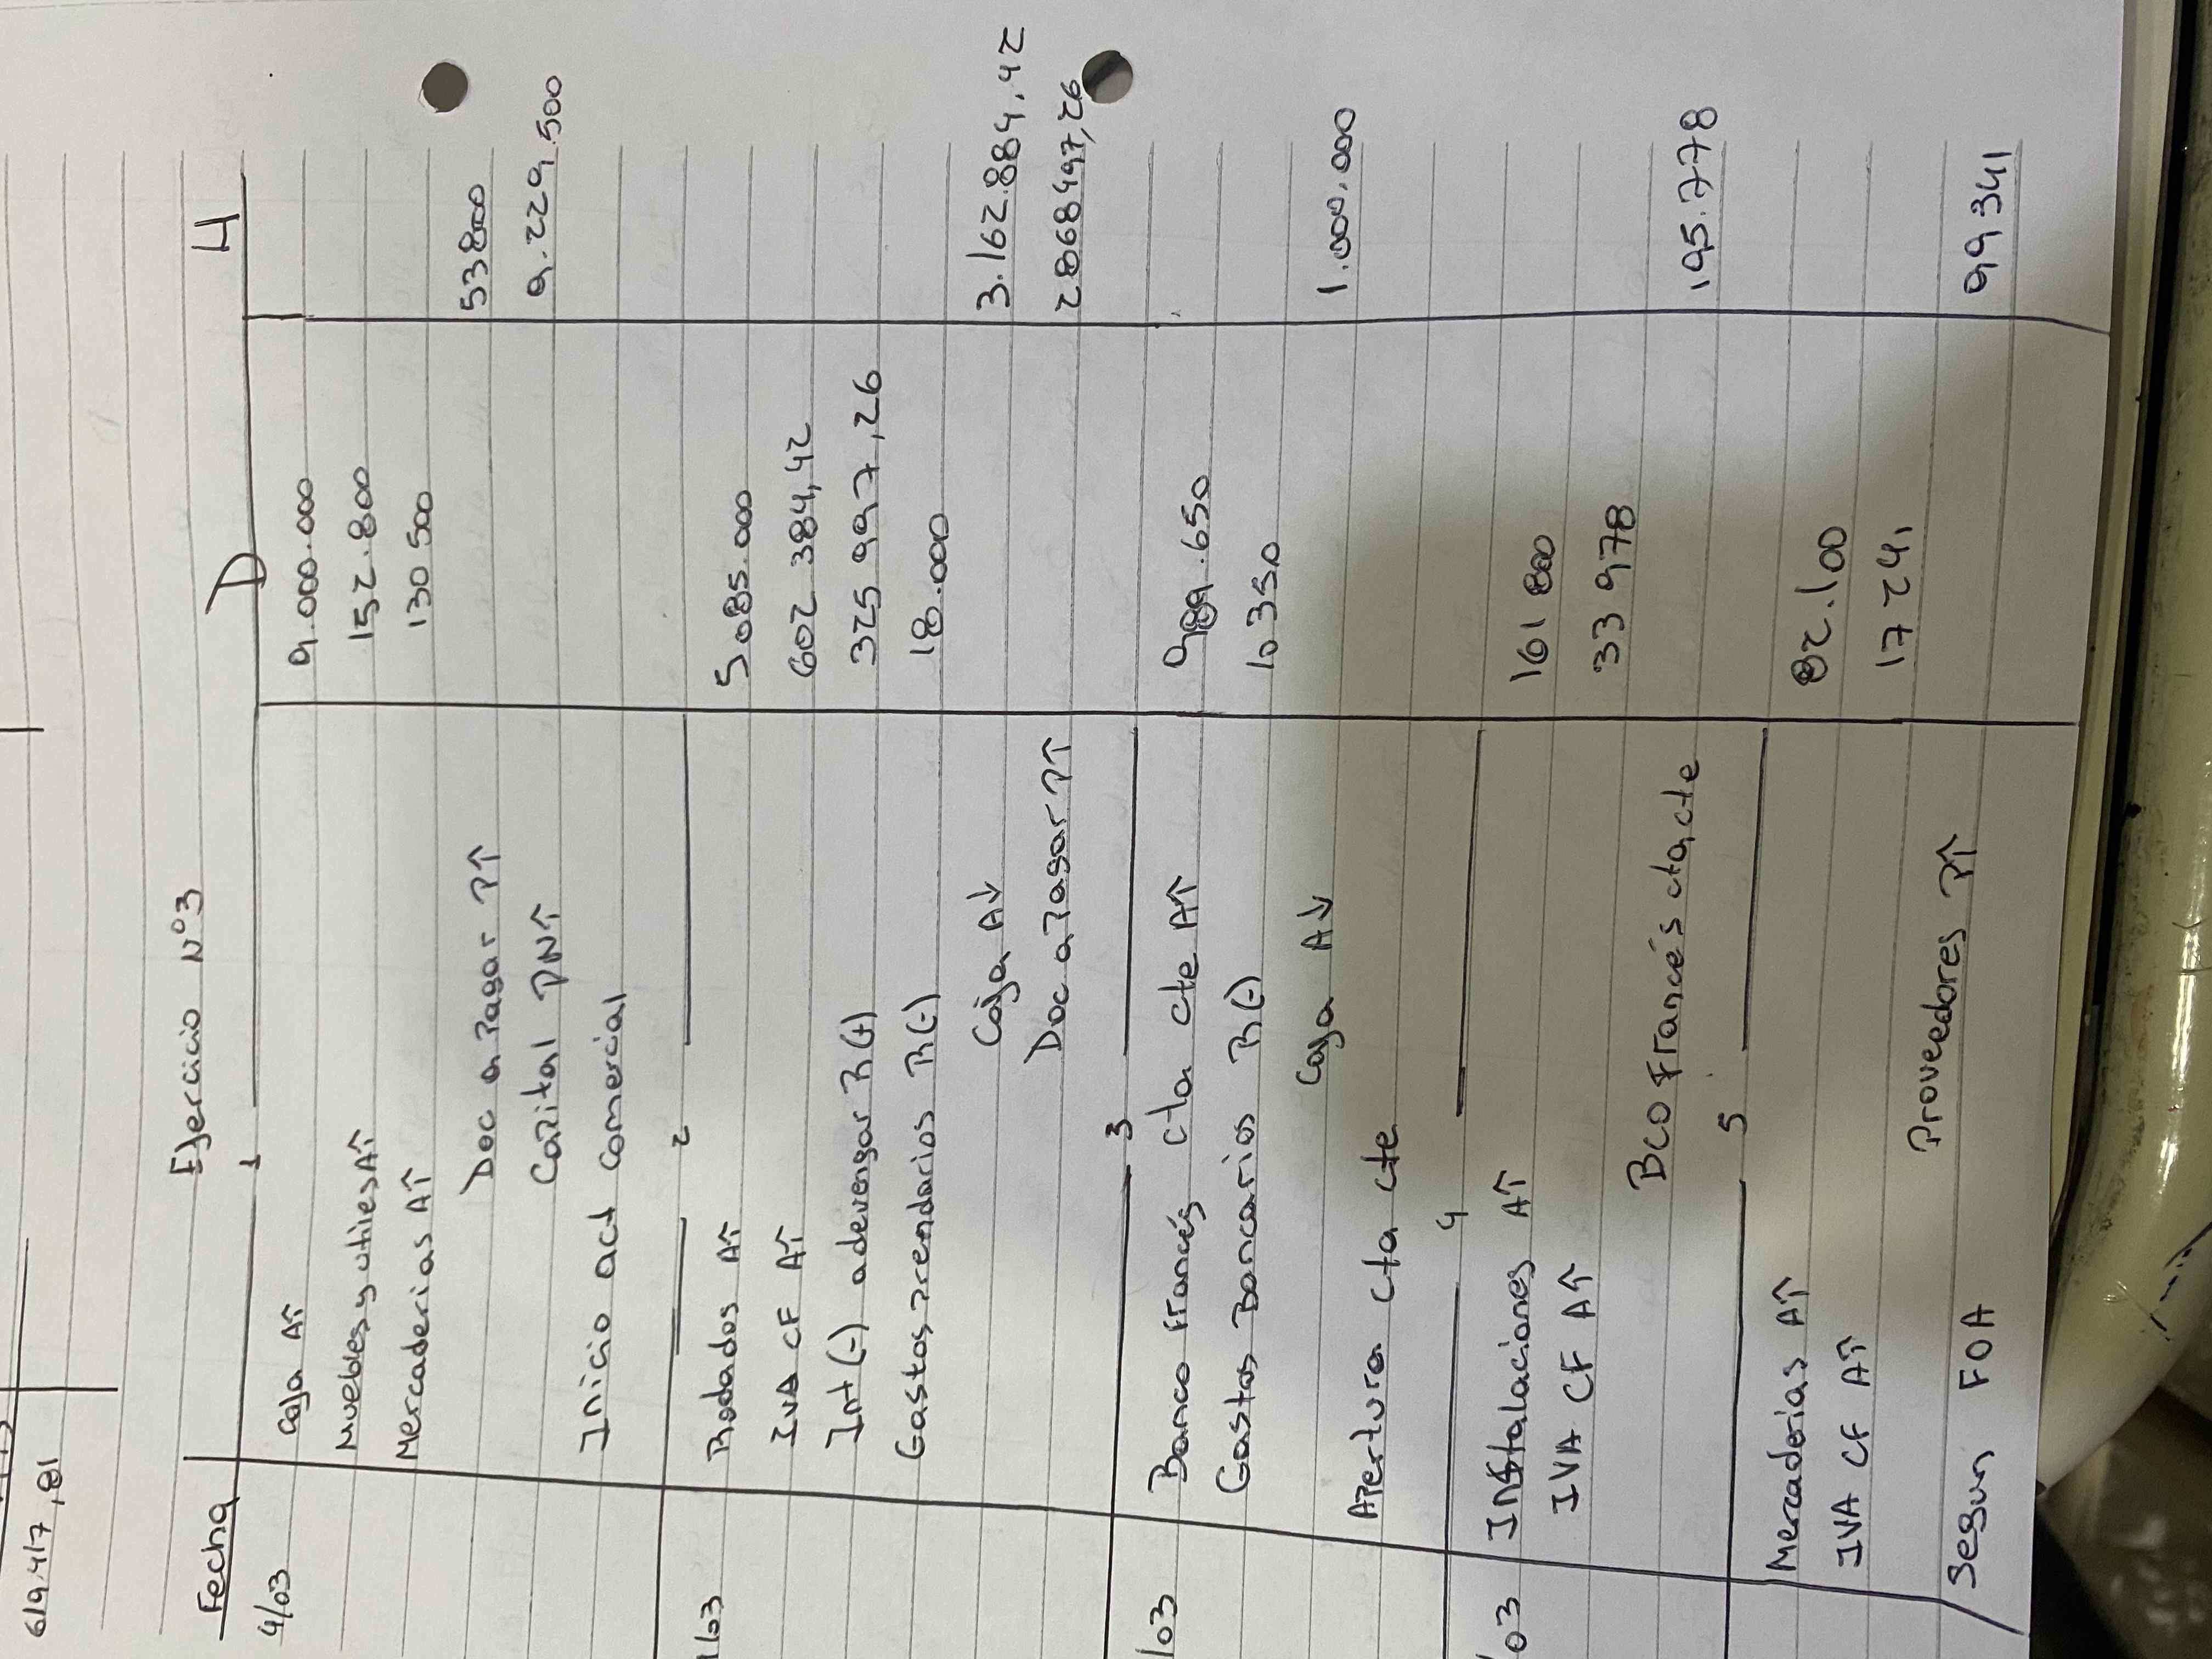 619.417,81
Ejercicio N°3
Fecha 1 D H
4/03 Caja A↑ 9.000.000
Muebles y utiles A↑ 152.800
Mercaderias A↑ 130 500
Doc a Pagar P↑ 53800
Capital PN↑ 9.229.500
Inicio act comercial
2
1/03 Rodados A↑ 5 085.000
IVA CF A↑ 602 384,42
Int (-) a devengar R(+) 325 997,26
Gastos prendarios R(-) 18.000
Caja A↓ 3.162.884,42
Doc a Pagar P↑ 2868 497,26
3
/03 Banco Francés cta cte A↑ 989.650
Gastos Bancarios R(-) 10350
Caja A↓ 1.000.000
Apertura cta cte
4
/03 Instalaciones A↑ 161 800
IVA CF A↑ 33 978
BCO Francés cta cte 195.778
5
Mercaderias A↑ 82.100
IVA CF A↑ 17 241
Proveedores P↑
Segun FOA 99 341